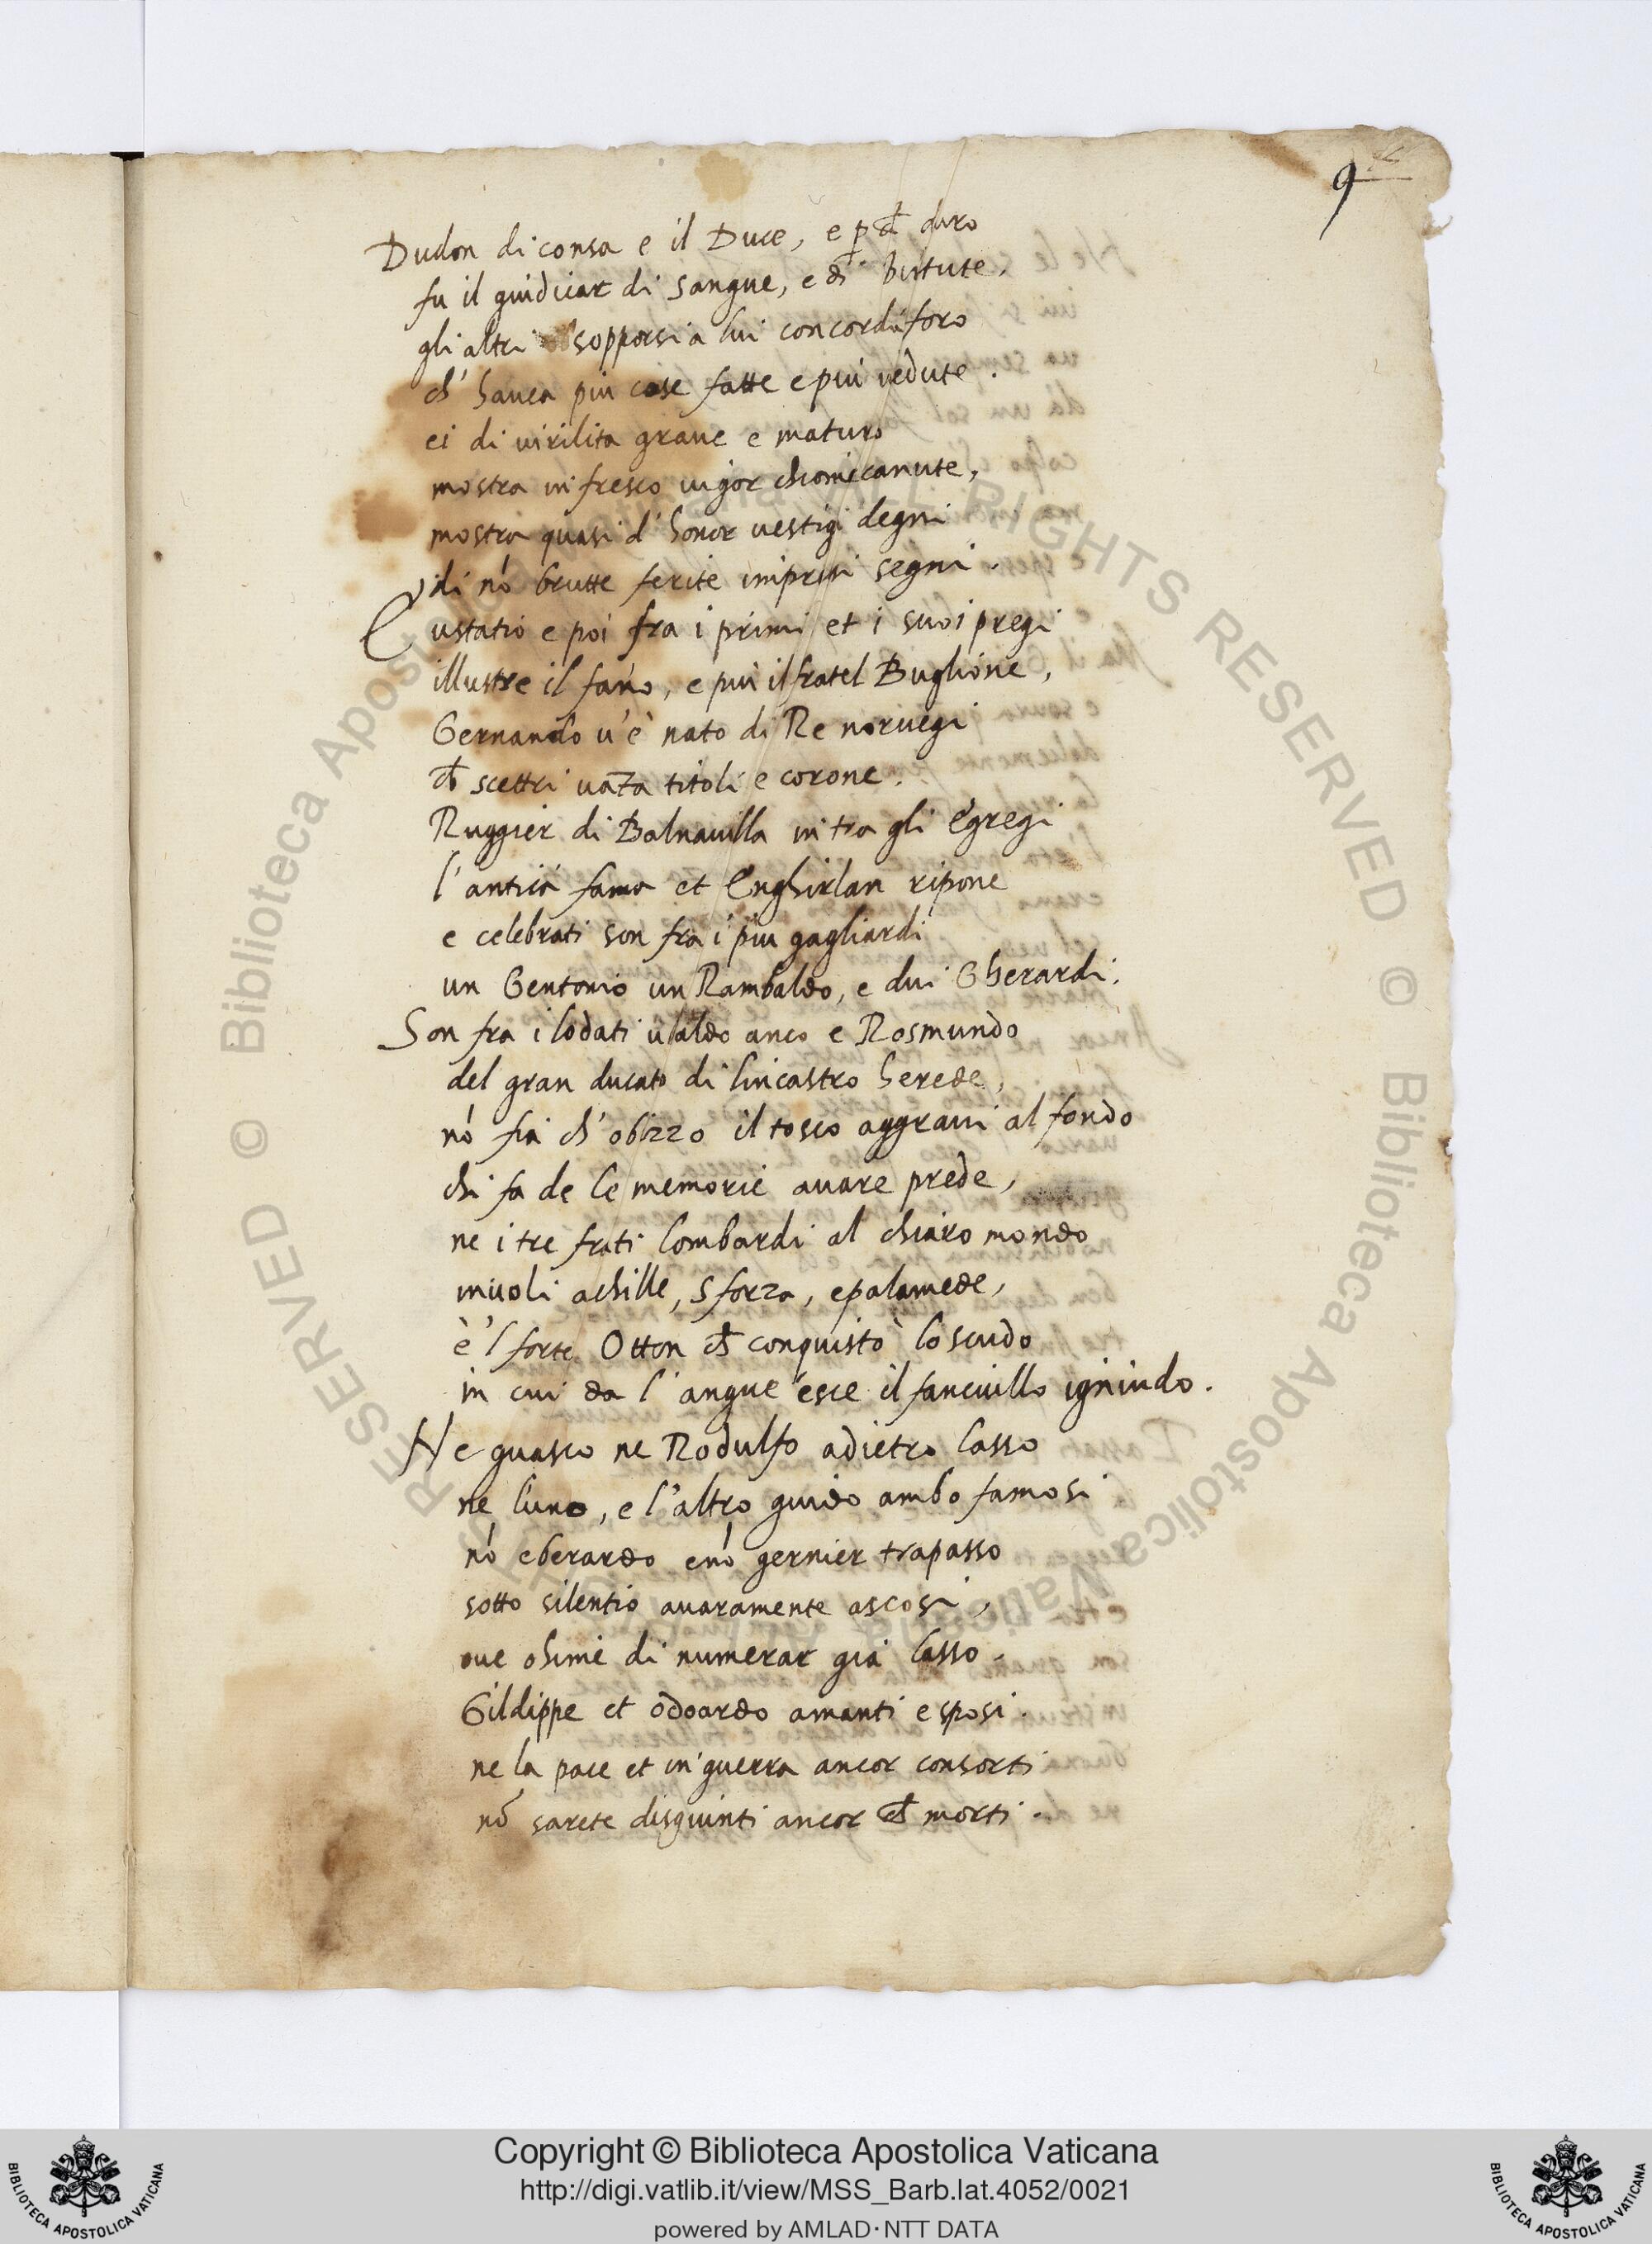 9
Dudon di consa e il Duce, e p ch duro
fu il giudicar di sangue, e di virtute.
gli altri sopporsi a lui concordi foro
ch' hauea piu cose fatte e piu vedute.
ei di virilita graue e maturo
mostra in fresco vigor chiome canute,
mostra quasi d' honor vestigi degni
di nō brutte ferite impressi segni.
Eustatio e poi fra i primi et i suoi pregi
illustre il fāno, e più il fratel Buglione,
Gernando v'è nato di Re noruegi
ch scettri vāta titoli e corone.
Ruggier di Balnauilla in tra gli egregi
l'antica fama et Enghirlan ripone
e celebrati son fra i piu gagliardi
un Gentonio un Rambaldo, e dui Gherardi.
Son fra i lodati ubaldo anco e Rosmundo
del gran ducato di lincastro herede,
nō fia ch' obizzo il tosco aggraui al fondo
chi fa de le memorie auare prede,
ne i tre frati lombardi al chiaro mondo
inuoli achille, sforza, e palamede,
e'l forte Otton ch conquistò lo scudo
in cui da l'angue esce il fanciullo ignudo.
Ne guasco ne Rodulfo adietro lasso
ne l'uno, e l'altro guido ambo famosi
nō eberardo e nō gernier trapasso
sotto silentio auaramente ascosi,
oue ohime di numerar già lasso.
Gildippe et odoardo amanti e sposi.
ne la pace et in guerra ancor consorti
nō sarete disgiunti ancor ch morti.
© Biblioteca Apostolica Vaticana ALL RIGHTS RESERVED
© Biblioteca Apostolica Vaticana ALL RIGHTS RESERVED
Copyright © Biblioteca Apostolica Vaticana
http://digi.vatlib.it/view/MSS_Barb.lat.4052/0021
powered by AMLAD·NTT DATA
BIBLIOTECA APOSTOLICA VATICANA
BIBLIOTECA APOSTOLICA VATICANA